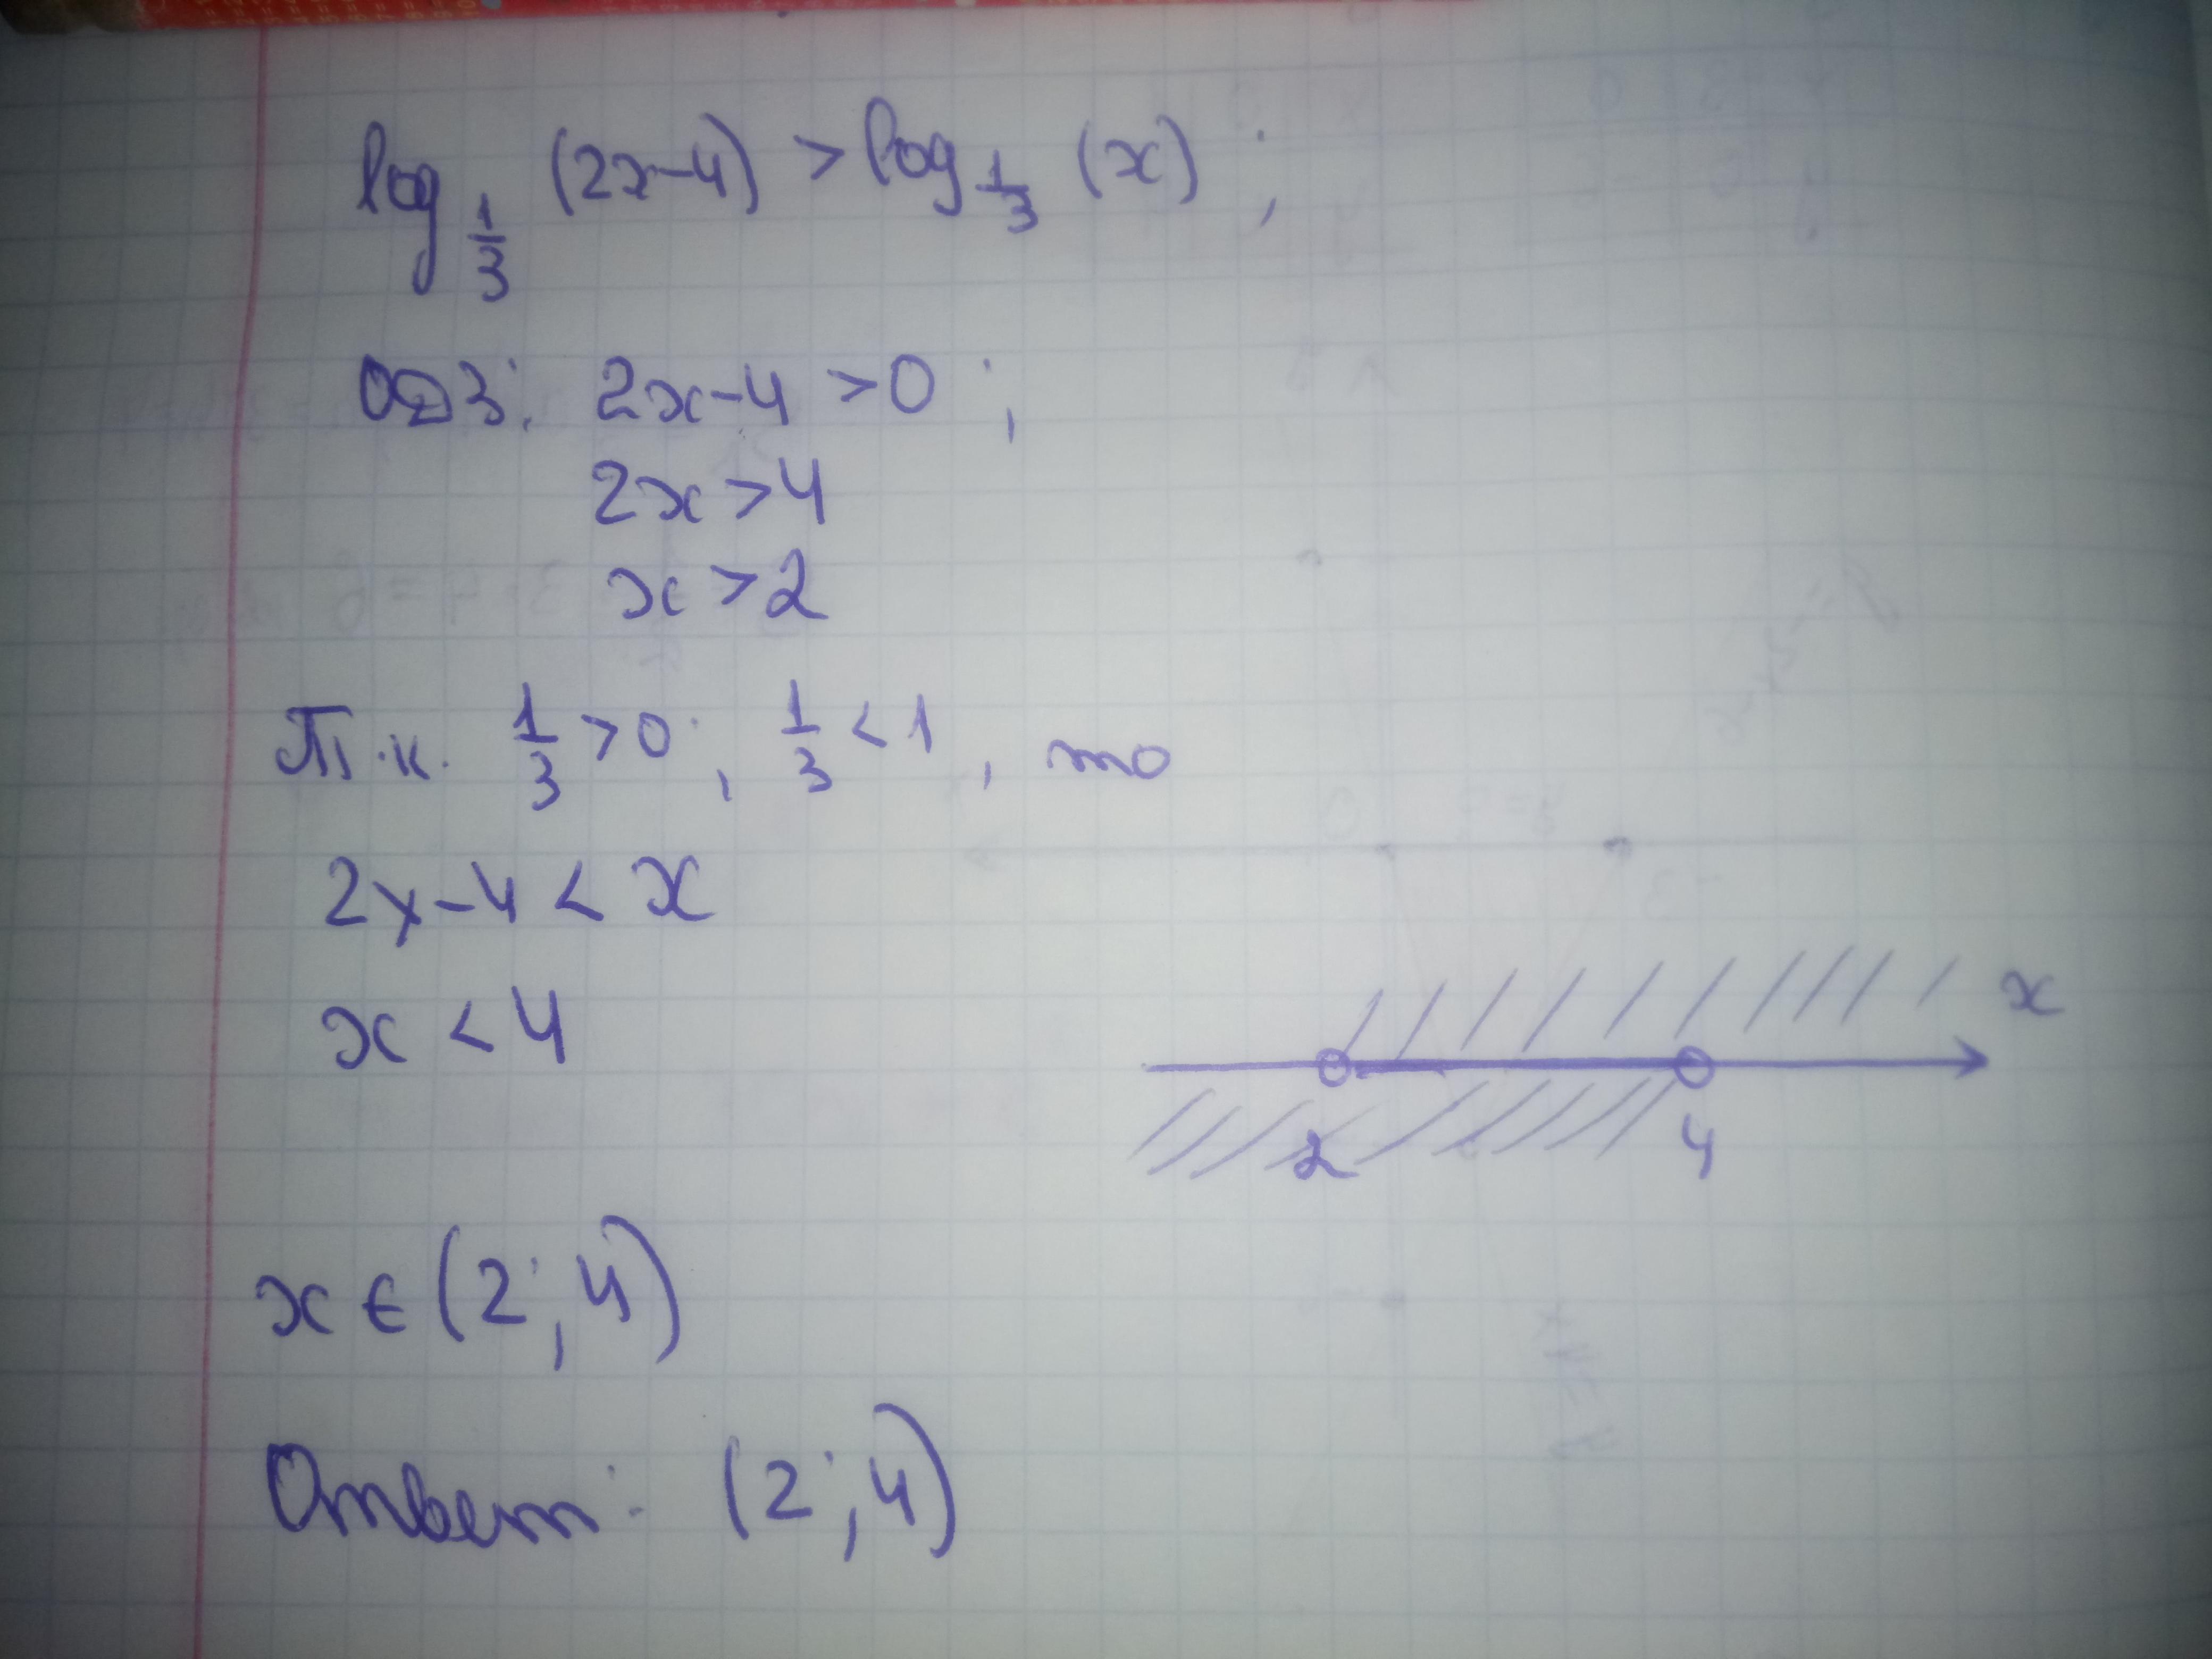 log 1/3 (2x-4) > log 1/3 (x);
ОДЗ: 2x-4 > 0;
2x > 4
x > 2
Т.к. 1/3 > 0; 1/3 < 1, то
2x-4 < x
x < 4
x
2 4
x ∈ (2; 4)
Ответ: (2; 4)